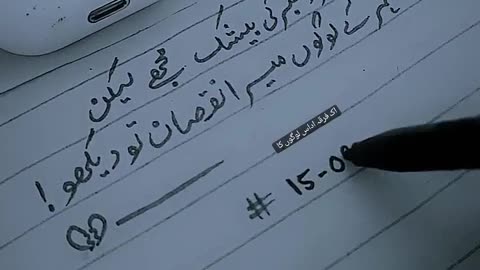 پیشک مجھے لیکن
کے لوگوں میرا نقصان تو دیکھو!
اک فرقہ اداس لوگوں کا
# 15-0